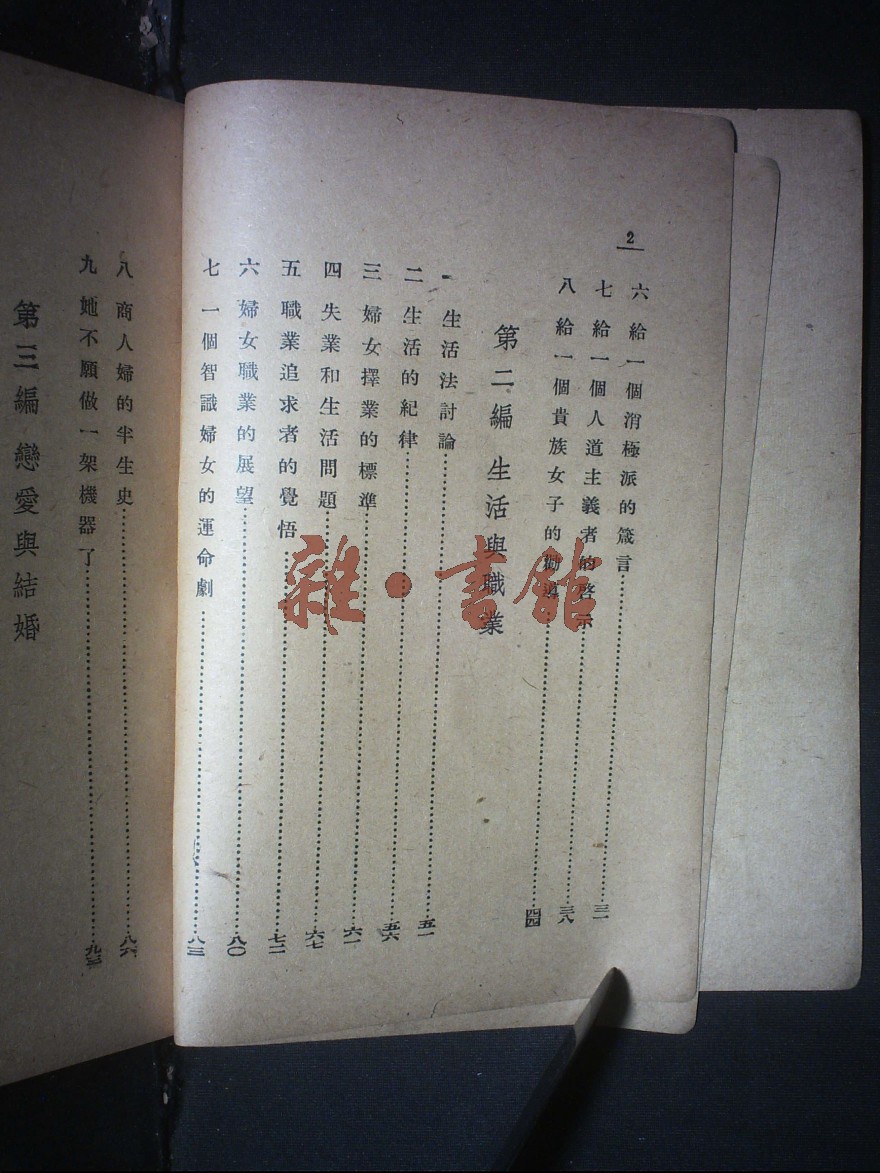 2
六 給一個消極派的箴言 三一
七 給一個人道主義者的啓示 三八
八 給一個貴族女子的勸導 四四
第二編 生活與職業
一 生活法討論 五一
二 生活的紀律 五六
三 婦女擇業的標準 六一
四 失業和生活問題 六七
五 職業追求者的覺悟 七二
六 婦女職業的展望 八〇
七 一個智識婦女的運命劇 八三
八 商人婦的半生史 八六
九 她不願做一架機器了 九三
第三編 戀愛與結婚
雜·書館